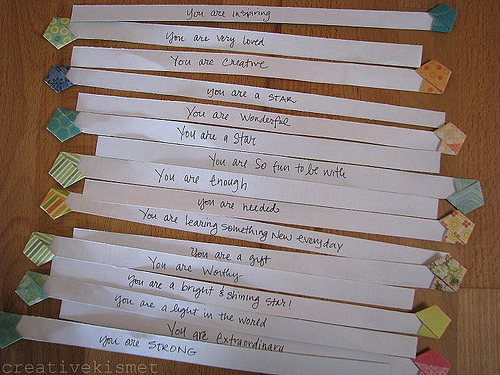 You are inspiring
You are very loved
You are Creative
you are a STAR
You are Wonderful
You are a Star
You are So fun to be with
You are enough
you are needed
You are learing something New everyday
You are a gift
You are Worthy
You are a bright & shining star!
You are a light in the world
You are extraordinary
you are STRONG
creativekismet